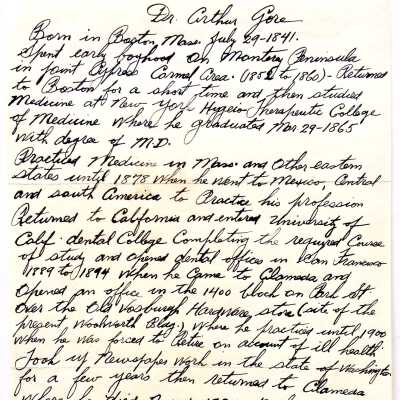 Dr. Arthur Gore
Born in Boston, Mass. July 29-1841.
Spent early boyhood on Montery Peninsula
in Joint Cypress Carmel Area. (1852 to 1860) - Returned
to Boston for a short time and then studied
Medicine at New York Hygeio Therapeutic College
of Medicine where he graduated Mar 29-1865
with degree of M.D.
Practiced Medicine in Mass. and other eastern
states until 1878 when he went to Mexico, Central
and south America to Practice his profession
Returned to California and entered University of
Calif. dental College Completing the required Course
of study and opened dental offices in San Francisco
1889 to 1894 when he Came to Alameda and
opened an office in the 1400 block on Park St
over the Old Vosburgh Hardware store (site of the
present Woolworth Bldg.) where he practiced until 1900
when he was forced to Retire on account of ill health
Took up Newspaper work in the state of Washington
for a few years then returned to Alameda
where he